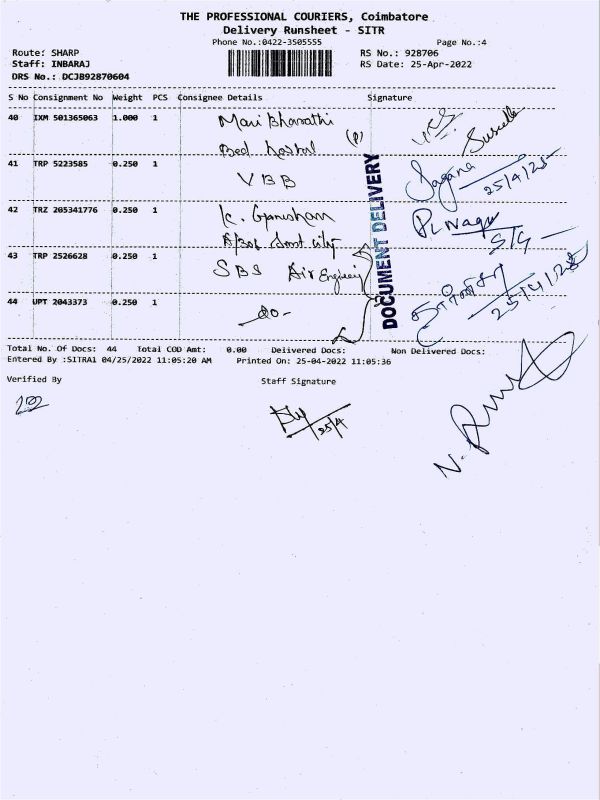 THE PROFESSIONAL COURIERS, Coimbatore
Delivery Runsheet - SITR
Phone No.:0422-3505555 Page No.:4
Route: SHARP RS No.: 928706
Staff: INBARAJ RS Date: 25-Apr-2022
DRS No.: DCJB92870604
S No Consignment No Weight PCS Consignee Details Signature
40 IXM 501365063 1.000 1 Mani Bharathi
(P)
41 TRP 5223585 0.250 1 VBB
25/4/25
42 TRZ 205341776 0.250 1 K. Ganesham
43 TRP 2526628 0.250 1 SBS Air
25/4/25
44 UPT 2043373 0.250 1 -do-
DOCUMENT DELIVERY
Total No. Of Docs: 44 Total COD Amt: 0.00 Delivered Docs: Non Delivered Docs:
Entered By :SITRA1 04/25/2022 11:05:20 AM Printed On: 25-04-2022 11:05:36
Verified By Staff Signature
25/4